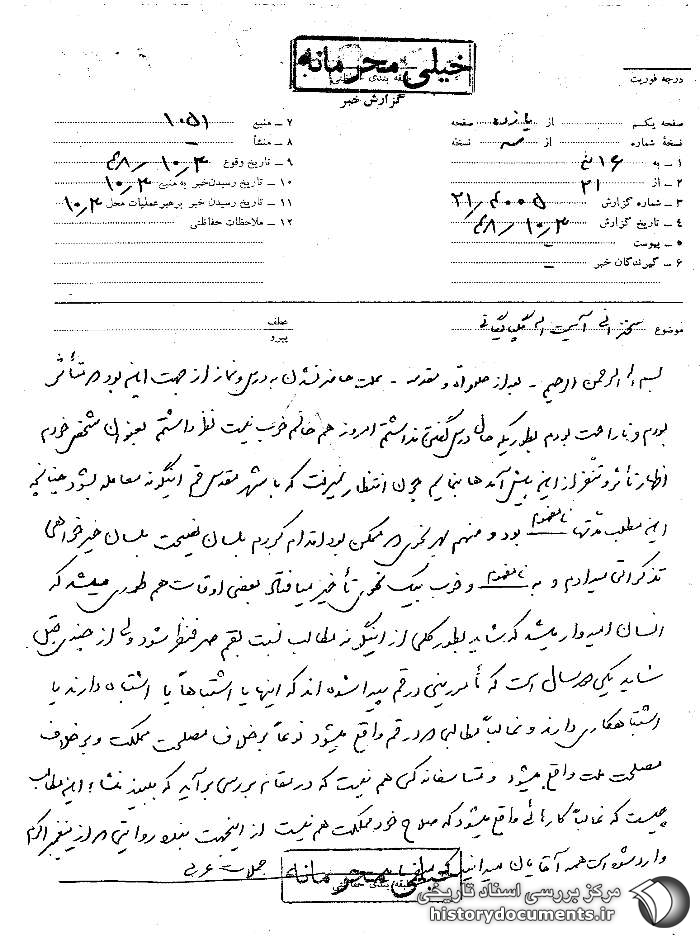 خیلی محرمانه
طبقه بندی حفاظتی
گزارش خبر
درجه فوریت
صفحه یکم از یازده صفحه
نسخهٔ شماره از سه نسخه
۱ ـ به ۱۶ هـ
۲ ـ از ۲۱
۳ ـ شماره گزارش ۲۱/۴۰۰۵
۴ ـ تاریخ گزارش ۴۸/۱۰/۴
۵ ـ پیوست ـ
۶ ـ گیرندگان خبر ـ
۷ ـ منبع ۱۰۵۱
۸ ـ منشأ ـ
۹ ـ تاریخ وقوع ۴۸/۱۰/۴
۱۰ ـ تاریخ رسیدن خبر به منبع ۱۰/۴
۱۱ ـ تاریخ رسیدن خبر برهبر عملیات محل ۱۰/۴
۱۲ ـ ملاحظات حفاظتی
موضوع سخنرانی آیت اله گلپایگانی
عطف
پیرو
بسم اله الرحمن الرحیم ـ بعد از صلواة و مقدمه ـ علت حاضر نشدن به درس و نماز از جهت این بود که متأثر
بودم و ناراحت بودم بطوریکه حال درس گفتن نداشتم امروز هم حالم خوب نیست نظر داشتم بعنوان شخص خودم
اظهار تأثر و تنفر از این پیش آمدها بنمایم چون انتظار نمیرفت که با شهر مقدس قم اینگونه معامله بشود چنانچه
این مطلب مدتها نامفهوم بود و منهم بهر نحوی که ممکن بود اقدام کردم بلسان نصیحت بلسان خیرخواهی
تذکراتی میدادم و به نامفهوم و خوب بیک نحوی تأخیر میافتاد بعضی اوقات هم طوری میشد که
انسان امیدوار میشد که شاید بطور کلی از اینگونه مطالب نسبت بقم صرفنظر شود ولی از چندی قبل
شاید یکی دو سال است که مأمورینی در قم پیدا شده اند که اینها یا اشتباهاً یا اشتباه دارند یا
اشتباهکاری دارند و غالباً مطالبی که در قم واقع میشود نوعاً برخلاف مصلحت مملکت و برخلاف
مصلحت ملت واقع میشود و متأسفانه کسی هم نیست که در مقام بررسی برآید که ببیند منشاء این مطالب
چیست که غالباً کارهائی واقع میشود که صلاح خود مملکت هم نیست از اینجهت بنده روایتی که از پیغمبر اکرم
وارد شده است همه آقایان میدانید که جملات عربی
خیلی محرمانه
طبقه بندی حفاظتی
مرکز بررسی اسناد تاریخی
historydocuments.ir